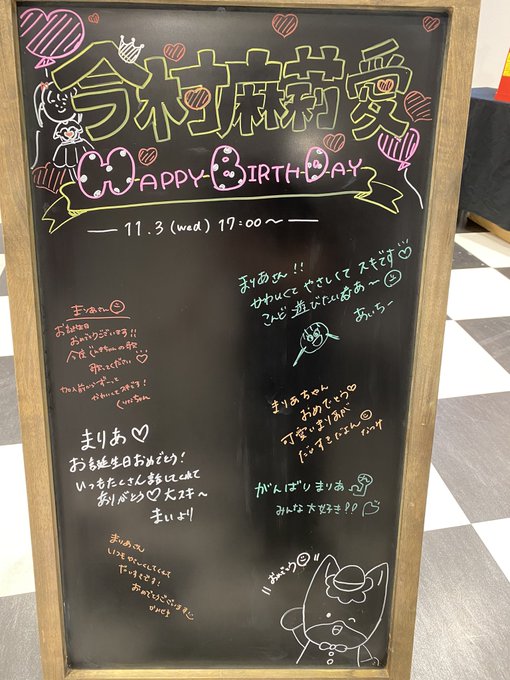 今村麻莉愛
HAPPY BIRTHDAY
11.3 (wed) 17:00〜
まりあさん!!
かわいくて やさしくて スキです♡
こんど 遊びたいなぁ〜
あいちー
まりあさん
お誕生日
おめでとうございます!!
今度
歌ってください♡
かわいくて
まりあちゃん
おめでとう♡
可愛いまりあが
だいすきだよん
なつみ
まりあ♡
お誕生日おめでとう!
いつもたくさん話してくれて
ありがとう♡大スキ〜
まいより
がんばりまりあ
みんな大好き!!
まりあさん
いつもやさしくしてくれて
だいすきです!
おめでとうございます
おめでとう